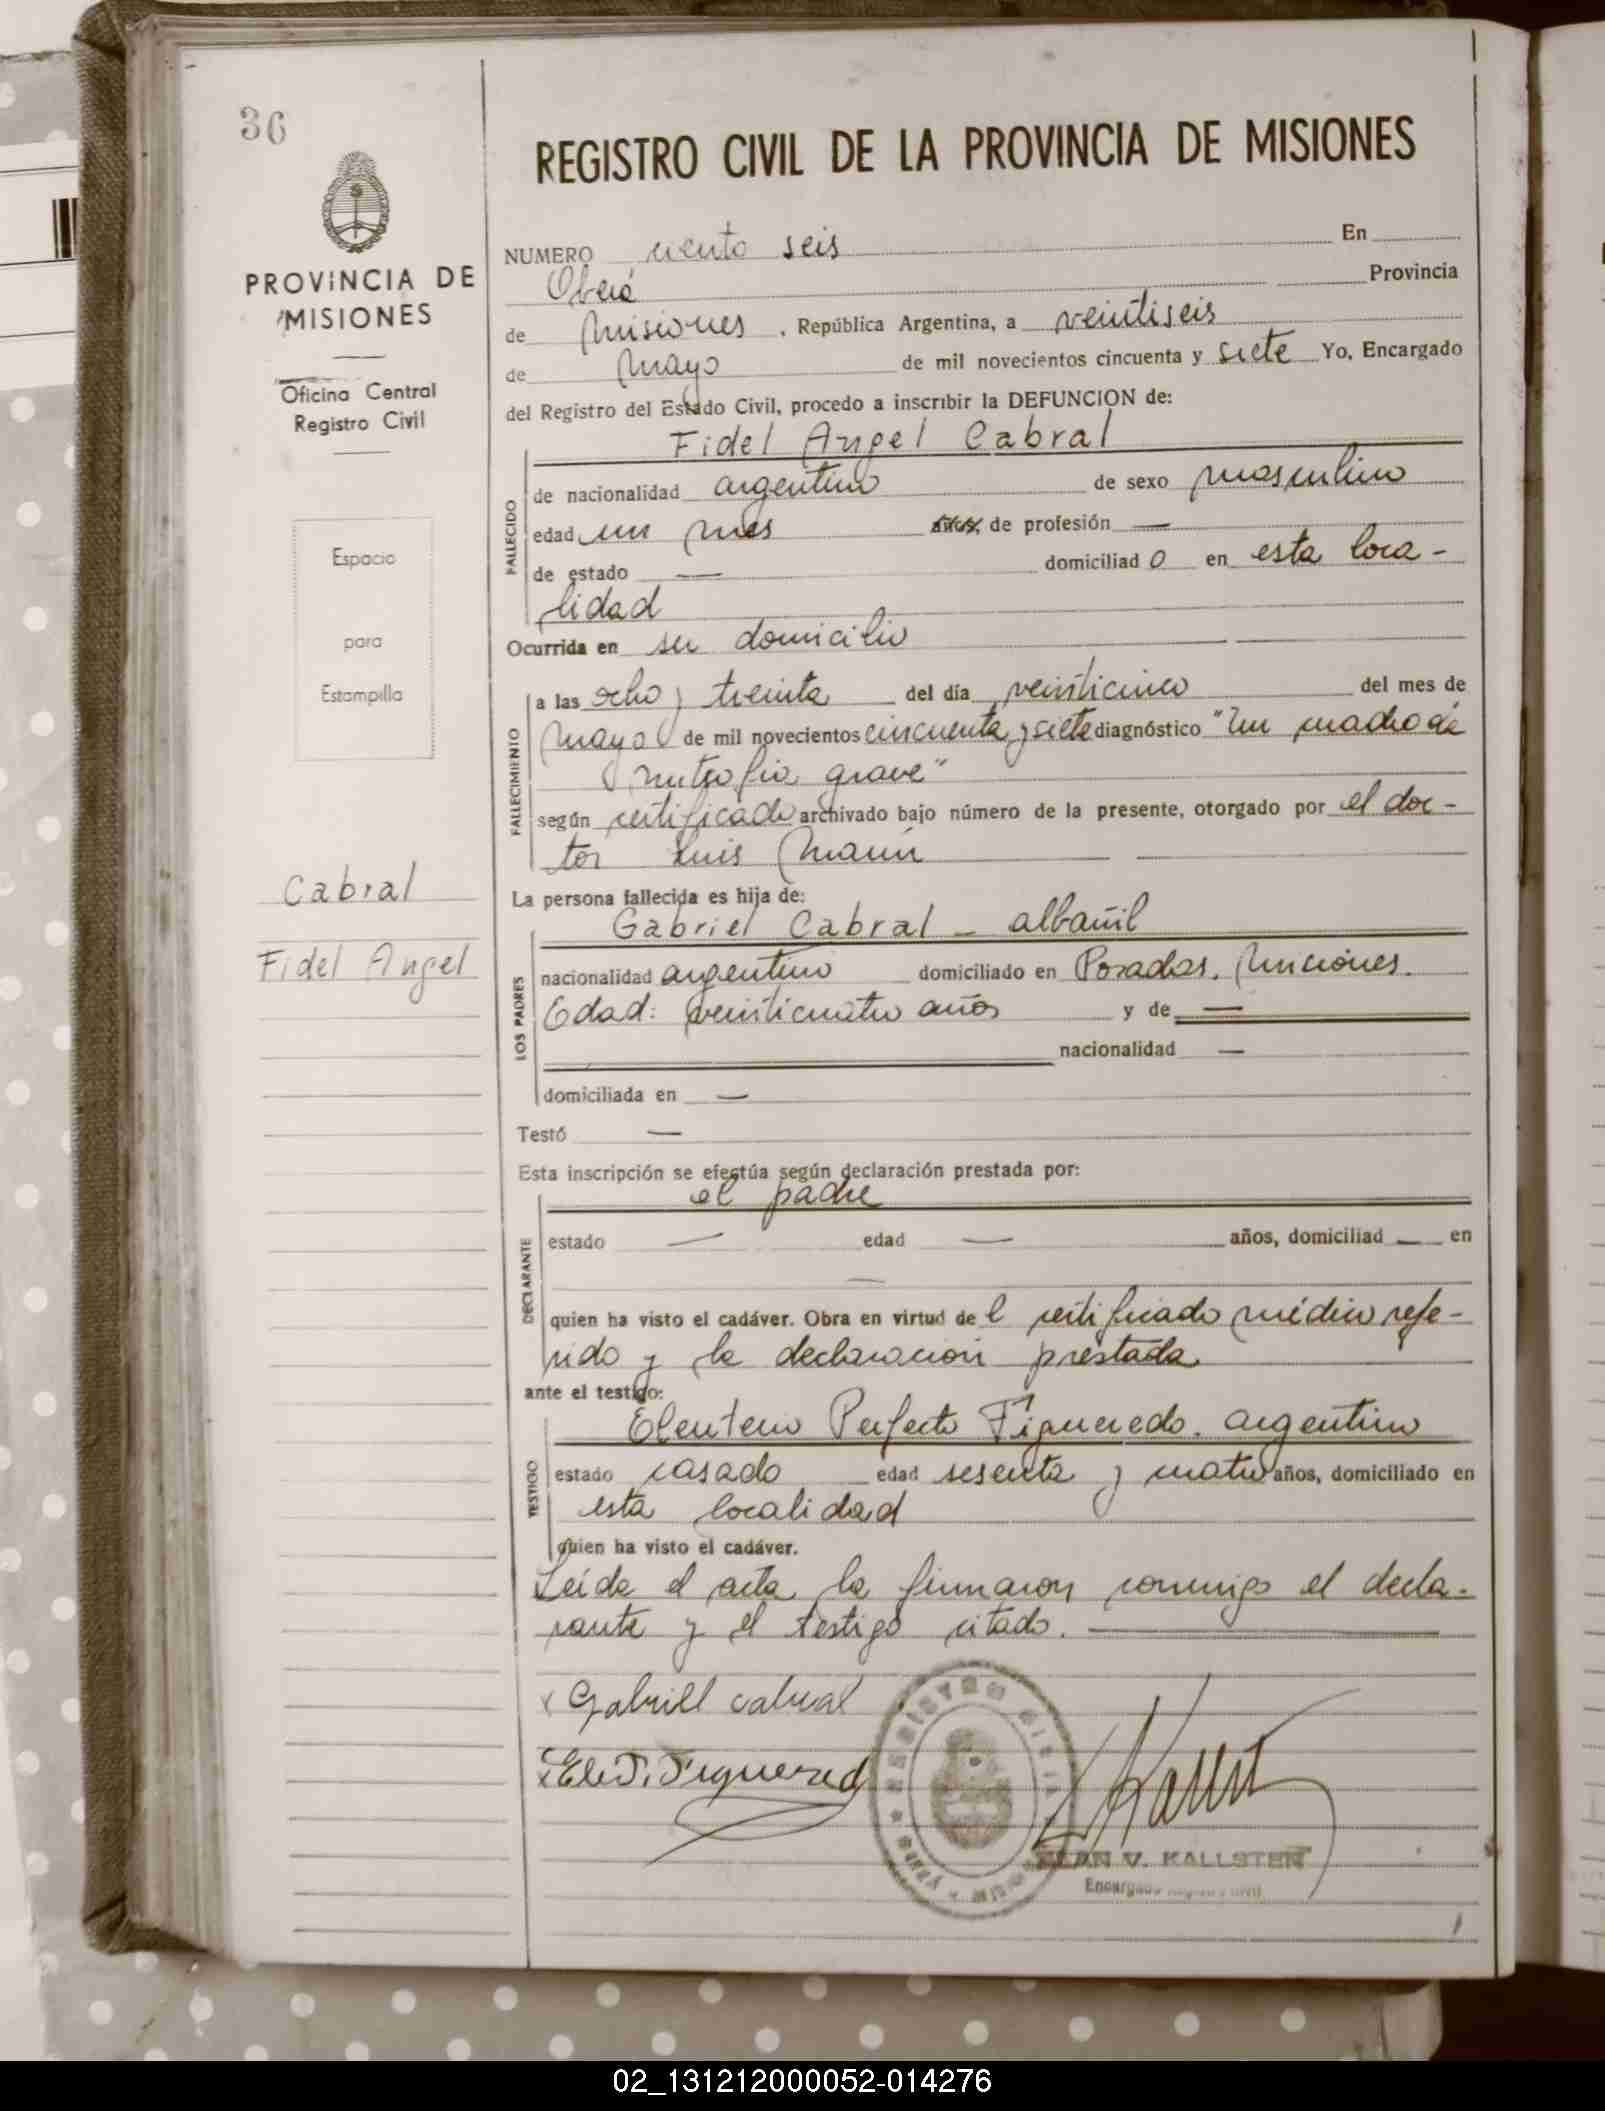 36
PROVINCIA DE
MISIONES
Oficina Central
Registro Civil
Espacio
para
Estampilla
Cabral
Fidel Angel
REGISTRO CIVIL DE LA PROVINCIA DE MISIONES
NUMERO ciento seis En
Oberá Provincia
de Misiones , República Argentina, a veintiseis
de Mayo de mil novecientos cincuenta y siete Yo, Encargado
del Registro del Estado Civil, procedo a inscribir la DEFUNCION de:
Fidel Angel Cabral
FALLECIDO
de nacionalidad argentino de sexo masculino
edad un mes años, de profesión —
de estado — domiciliad o en esta loca-
lidad
Ocurrida en su domicilio
FALLECIMIENTO
a las ocho y treinta del día veinticinco del mes de
Mayo de mil novecientos cincuenta y siete diagnóstico "Un
grave"
según certificado archivado bajo número de la presente, otorgado por el doc-
tor Luis
La persona fallecida es hija de:
Gabriel Cabral - albañil
LOS PADRES
nacionalidad argentino domiciliado en Posadas, Misiones.
Edad: veinticuatro años y de —
nacionalidad —
domiciliada en —
Testó —
Esta inscripción se efectúa según declaración prestada por:
el padre
DECLARANTE
estado — edad — años, domiciliad — en
—
quien ha visto el cadáver. Obra en virtud de l certificado médico refe-
rido y la declaración prestada
ante el testigo:
Eleuterio Perfecto Figueredo. argentino
TESTIGO
estado casado edad sesenta y cuatro años, domiciliado en
esta localidad
quien ha visto el cadáver.
Leída el acta la firmaron conmigo el decla-
rante y el testigo citado. —
x Gabriell cabral
Ele P. Figueredo
V. KALLSTEN
Encargado Registro Civil
02_131212000052-014276